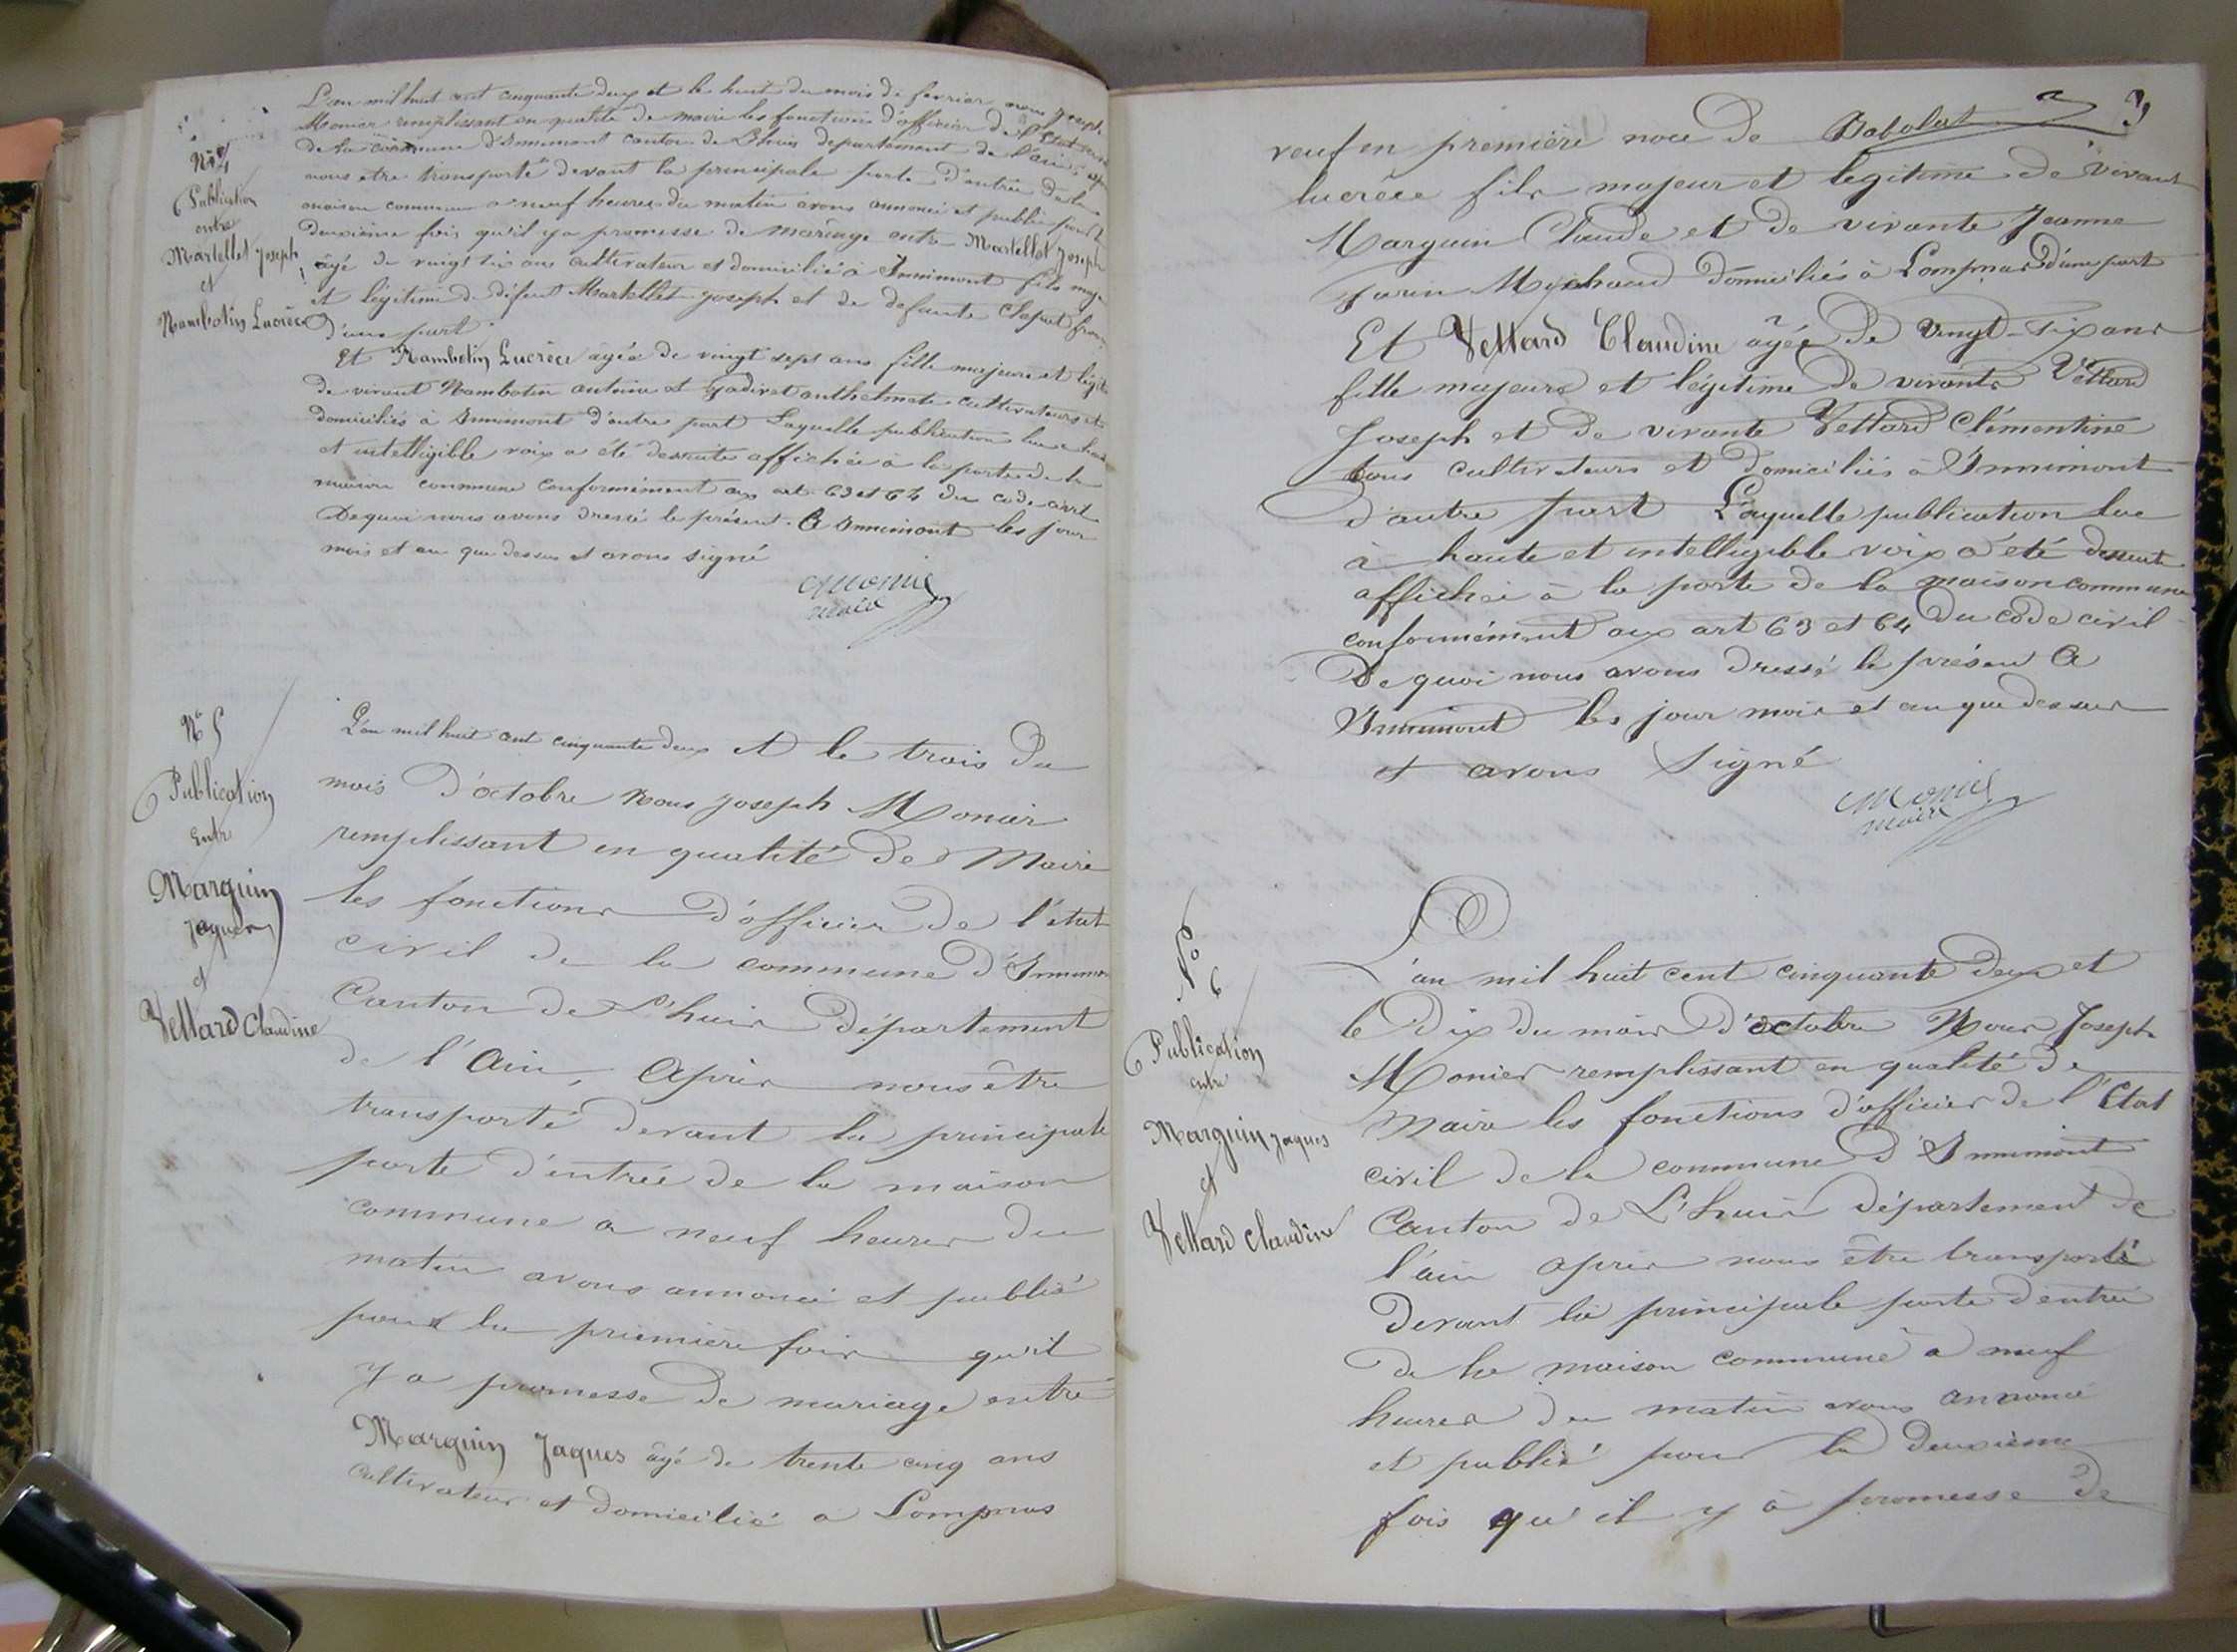 N° 4
Publication
entre
Martellet Joseph
et
Nambotin Lucrèce
L'an mil huit cent cinquante deux et le huit du mois de fevrier nous Joseph
Monier remplissant en qualité de maire les fonctions d'officier de l'Etat
de la commune d'Innimont canton de Lhuis departement de l'ain,
nous etre transporté devant la principale porte d'entrée de la
maison commune a neuf heures du matin avons annoncé et publié pour la
deuxième fois qu'il y a promesse de mariage entre Martellet Joseph
âgé de vingt six ans cultivateur et domicilié à Innimont fils
et légitime de défunt Martellet Joseph et de defunte Claput
d'une part
Et Nambotin Lucrèce âgée de vingt sept ans fille majeure et
de vivant Nambotin antoine et anthelmette cultivateurs et
domiciliés à Innimont d'autre part Laquelle publication lue a
et intelligible voix a été desuite affichée à la porte de la
maison commune conformément aux art 63 et 64 du code civil
De quoi nous avons dressé le présent. A Innimont les jour
mois et an que dessus et avons signé
Monier
maire
N° 5
Publication
Entre
Marguin
Jaques
et
Vettard Claudine
L'an mil huit cent cinquante deux et le trois du
mois d'octobre Nous Joseph Monier
remplissant en qualité de Maire
les fonctions d'officier de l'état
civil de la commune d'Innimon
Canton de L'huis département
de l'Ain, Après nous être
transporté devant la principale
porte d'entrée de la maison
commune a neuf heures du
matin avons annoncé et publié
pour la première fois qu'il
y a promesse de mariage entre
Marguin Jaques âgé de trente cinq ans
cultivateur et domicilié a Lompnas
3
veuf en première noce de Babolat
lucrèce fils majeur et légitime de vivant
Marguin Claude et de vivante Jeanne
Michaud domiciliés à Lompnas d'une part
Et Vettard Claudine âgée de vingt-six ans
fille majeure et légitime de vivants Vettard
Joseph et de vivante Vettard Clémentine
tous cultivateurs et domiciliés à Innimont
d'autre part Laquelle publication lue
à haute et intelligible voix a été desuite
affichée à la porte de la maison commune
conformément aux art 63 et 64 du code civil
De quoi nous avons dressé le présent A
Innimont les jour mois et an que dessus
et avons signé
Monier
maire
N° 6
Publication
entre
Marguin Jaques
et
Vettard Claudine
L'an mil huit cent cinquante deux et
le dix du mois d'octobre Nous Joseph
Monier remplissant en qualité de
Maire les fonctions d'officier de l'Etat
civil de la commune d'Innimont
Canton de L'huis département de
l'ain après nous être transporté
Devant la principale porte d'entrée
de la maison commune a neuf
heures du matin avons annoncé
et publié pour la deuxième
fois qu'il y à promesse de